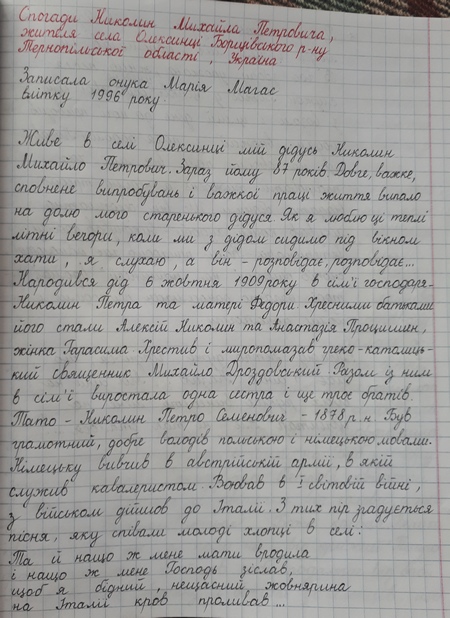 Спогади Николин Михайла Петровича,
жителя села Олексинці Борщівського р-ну
Тернопільської області, Україна
Записала онука Марія Магас
влітку 1996 року
Живе в селі Олексинці мій дідусь Николин
Михайло Петрович. Зараз йому 87 років Довге, важке,
сповнене випробувань і важкої праці життя випало
на долю мого старенького дідуся Як я люблю ці теплі
літні вечори, коли ми з дідом сидимо під вікном
хати, я слухаю, а він - розповідає, розповідає...
Народився дід 6 жовтня 1909 року в сім'ї господаря-
Николин Петра та матері Федори Хресними батьками
його стали Алексій Николин та Анастазія Процишин,
жінка Гарасима Хрестив і миропомазав греко-католиць-
кий священник Михайло Дроздовський Разом із ним
в сім'ї виростала одна сестра і ще троє братів.
Тато - Николин Петро Семенович - 1878 р.н. Був
грамотний, добре володів польською і німецькою мовами.
Німецьку вивчив в австрійській армії, в якій
служив кавалеристом. Воював в І світовій війні,
з військом дійшов до Італії. З тих пір згадується
пісня, яку співали молоді хлопці в селі:
Та й нащо ж мене мати вродила
і нащо ж мене Господь зіслав,
щоб я бідний, нещасний жовнярина
на Італії кров проливав...